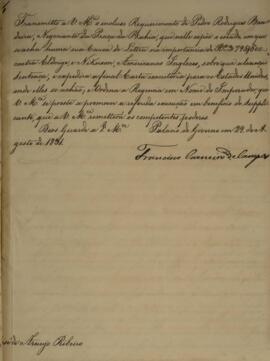 Transmitto a V. Mce o incluso Requerimento de Pedro Rodrigues Ban-
deira, Negociante da Praça da Bahia, que nelle expõe o estado em que
se acha huma sua Cauza de Letra na importancia de
contra Eldrige e Americanos Inglezes, sobre que alcançou
sentença, e expedira afinal Carta executoria para os Estados Unidos,
onde elles se achão; e Ordena a Regencia em Nome do Imperador, que
V. Mce se preste a promover a referida execução em beneficio do suppli-
cante, que a V. Mce remetterá os competentes poderes.
Deos Guarde a V. Mce Palacio do Governo em 29 de A-
gosto de 1831.
Francisco Carneiro de Campos
Araujo Ribeiro